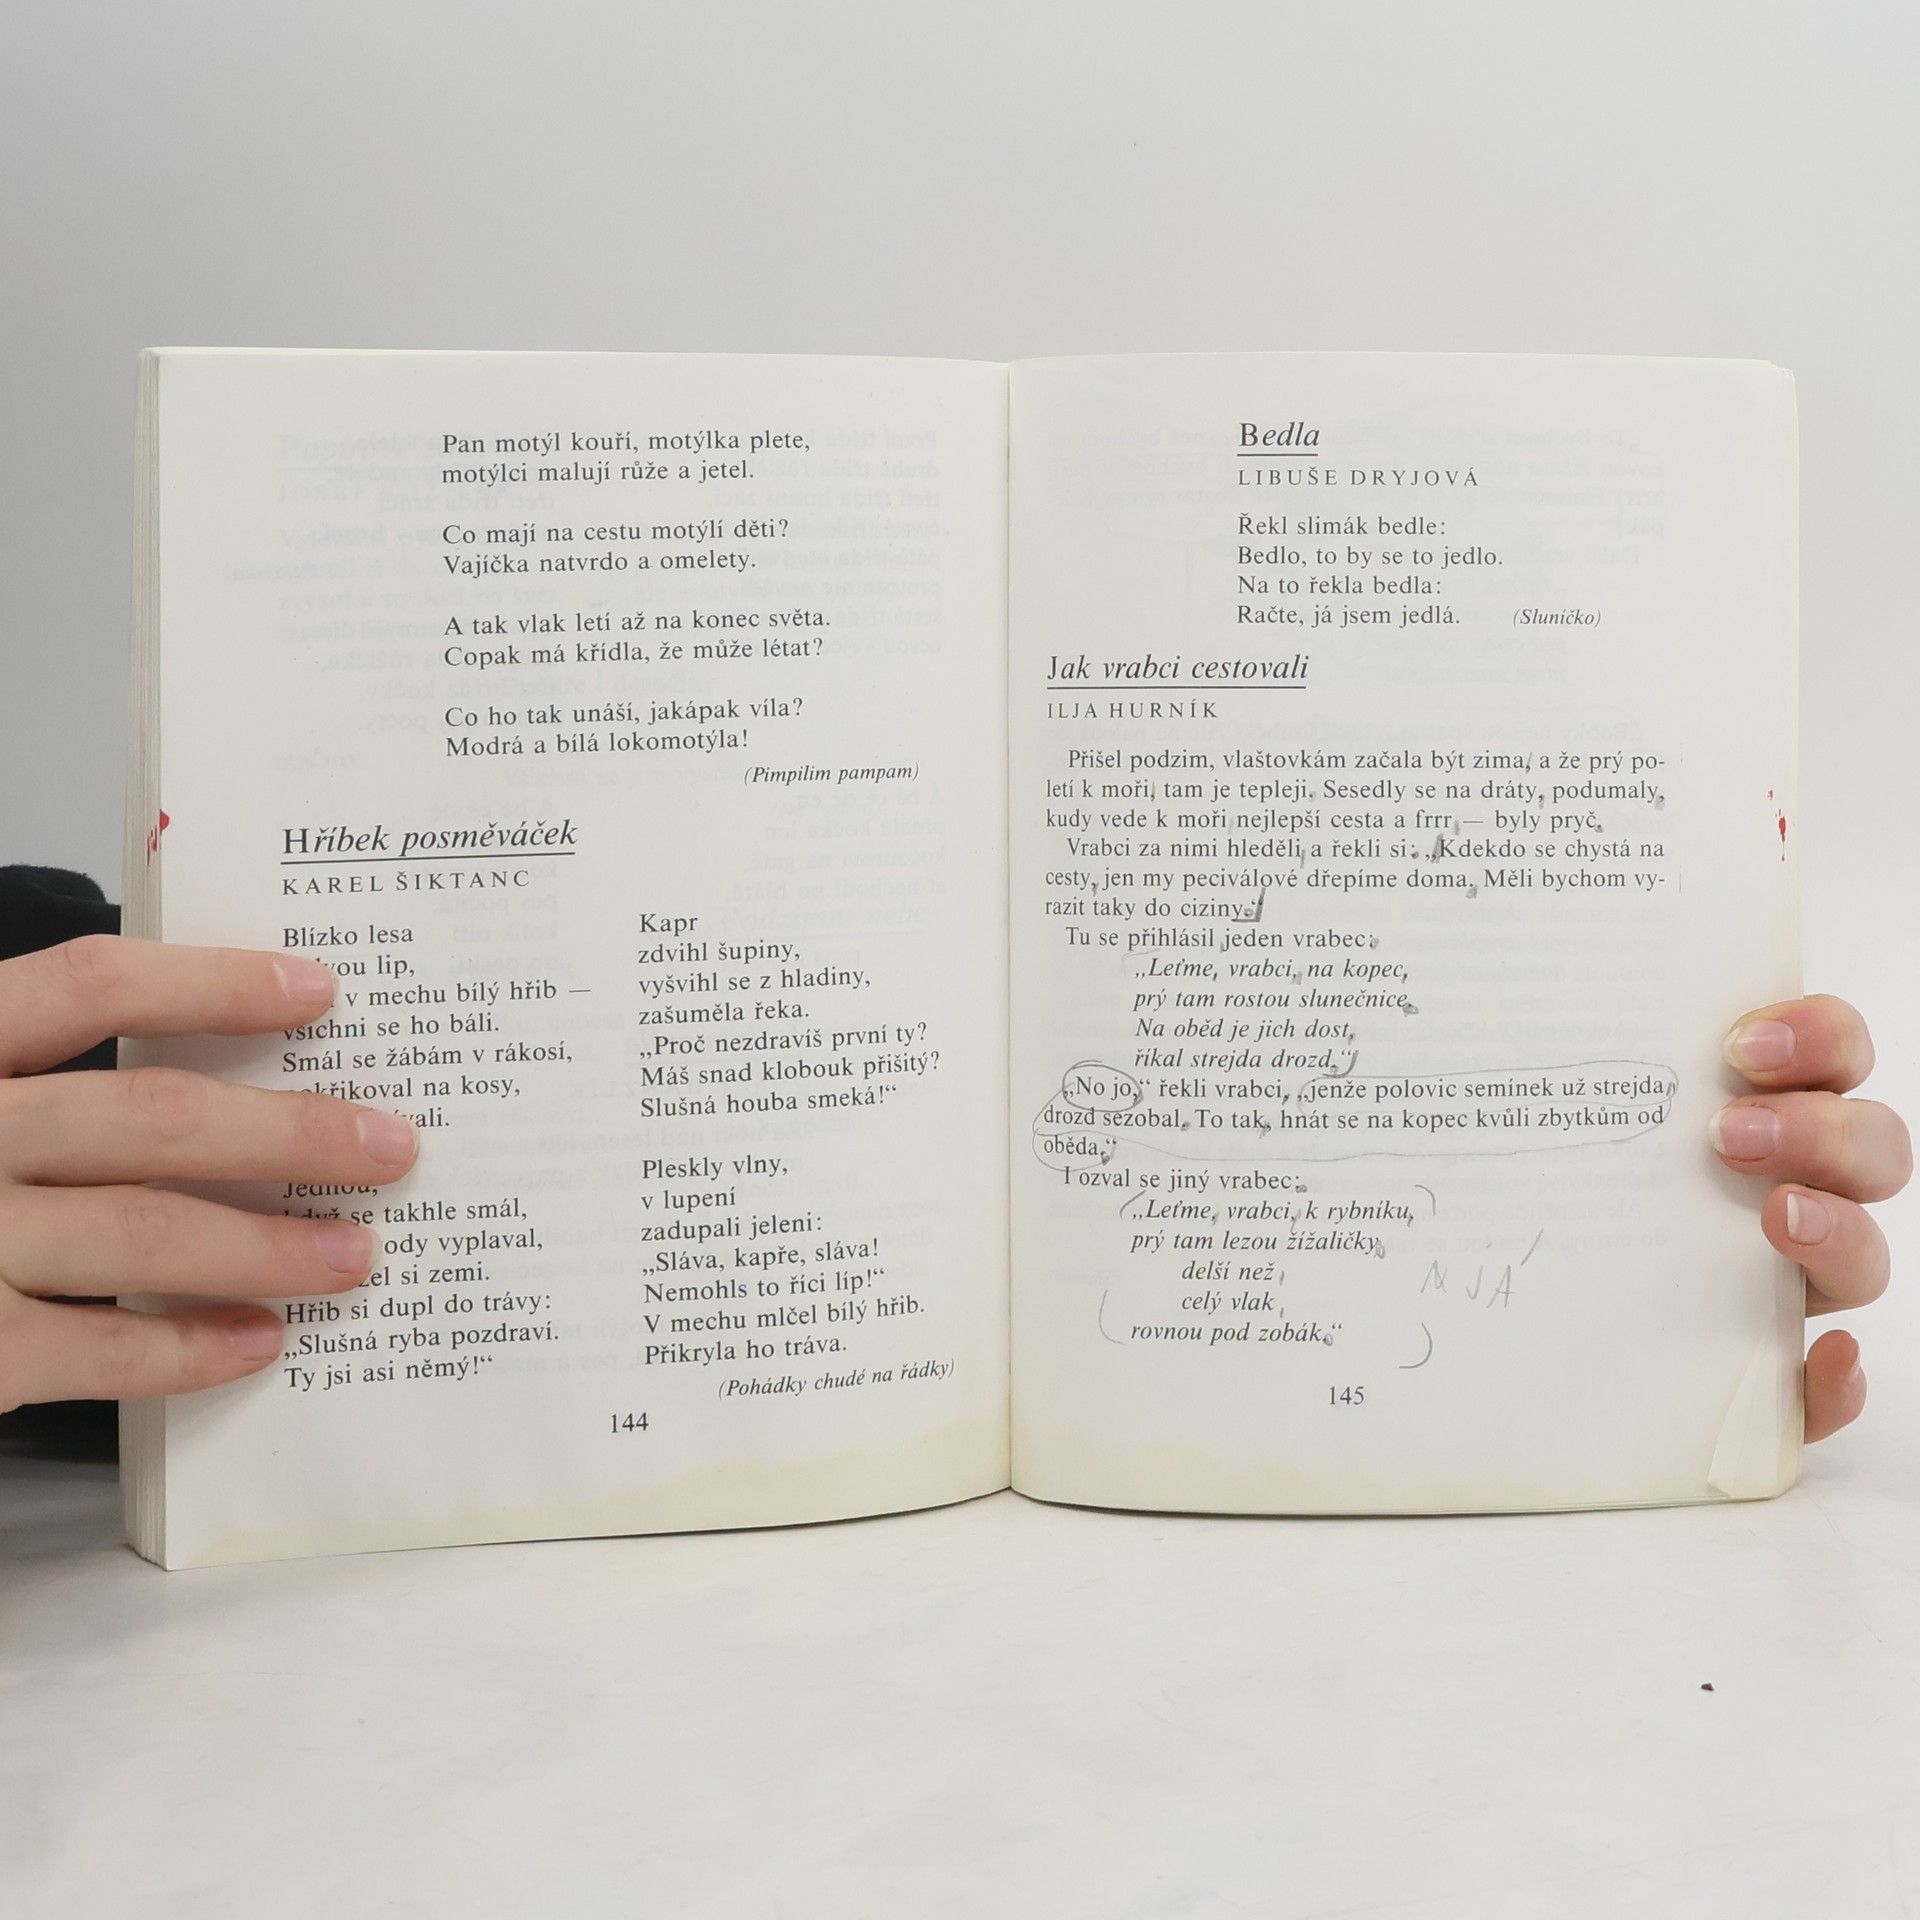 Pan motýl kouří, motýlka plete,
motýlci malují růže a jetel.
Co mají na cestu motýlí děti?
Vajíčka natvrdo a omelety.
A tak vlak letí až na konec světa.
Copak má křídla, že může létat?
Co ho tak unáší, jakápak víla?
Modrá a bílá lokomotýla!
(Pimpilim pampam)
Hříbek posměváček
KAREL ŠIKTANC
Blízko lesa
lip,
v mechu bílý hřib —
všichni se ho báli.
Smál se žábám v rákosí,
pokřikoval na kosy,
Jednou,
když se takhle smál,
vyplaval,
si zemi.
Hřib si dupl do trávy:
„Slušná ryba pozdraví.
Ty jsi asi němý!“
Kapr
zdvihl šupiny,
vyšvihl se z hladiny,
zašuměla řeka.
„Proč nezdravíš první ty?
Máš snad klobouk přišitý?
Slušná houba smeká!“
Pleskly vlny,
v lupení
zadupali jeleni:
„Sláva, kapře, sláva!
Nemohls to říci líp!“
V mechu mlčel bílý hřib.
Přikryla ho tráva.
(Pohádky chudé na řádky)
144
Bedla
LIBUŠE DRYJOVÁ
Řekl slimák bedle:
Bedlo, to by se to jedlo.
Na to řekla bedla:
Račte, já jsem jedlá. (Sluníčko)
Jak vrabci cestovali
ILJA HURNÍK
Přišel podzim, vlaštovkám začala být zima, a že prý po-
letí k moři, tam je tepleji. Sesedly se na dráty, podumaly,
kudy vede k moři nejlepší cesta a frrr — byly pryč.
Vrabci za nimi hleděli a řekli si: „Kdekdo se chystá na
cesty, jen my peciválové dřepíme doma. Měli bychom vy-
razit taky do ciziny.“
Tu se přihlásil jeden vrabec:
„Leťme, vrabci, na kopec,
prý tam rostou slunečnice.
Na oběd je jich dost,
říkal strejda drozd.“
„No jo,“ řekli vrabci, „jenže polovic semínek už strejda
drozd sezobal. To tak, hnát se na kopec kvůli zbytkům od
oběda.“
I ozval se jiný vrabec:
„Leťme, vrabci, k rybníku,
prý tam lezou žížaličky
delší než
celý vlak
rovnou pod zobák.“
N JÁ
145